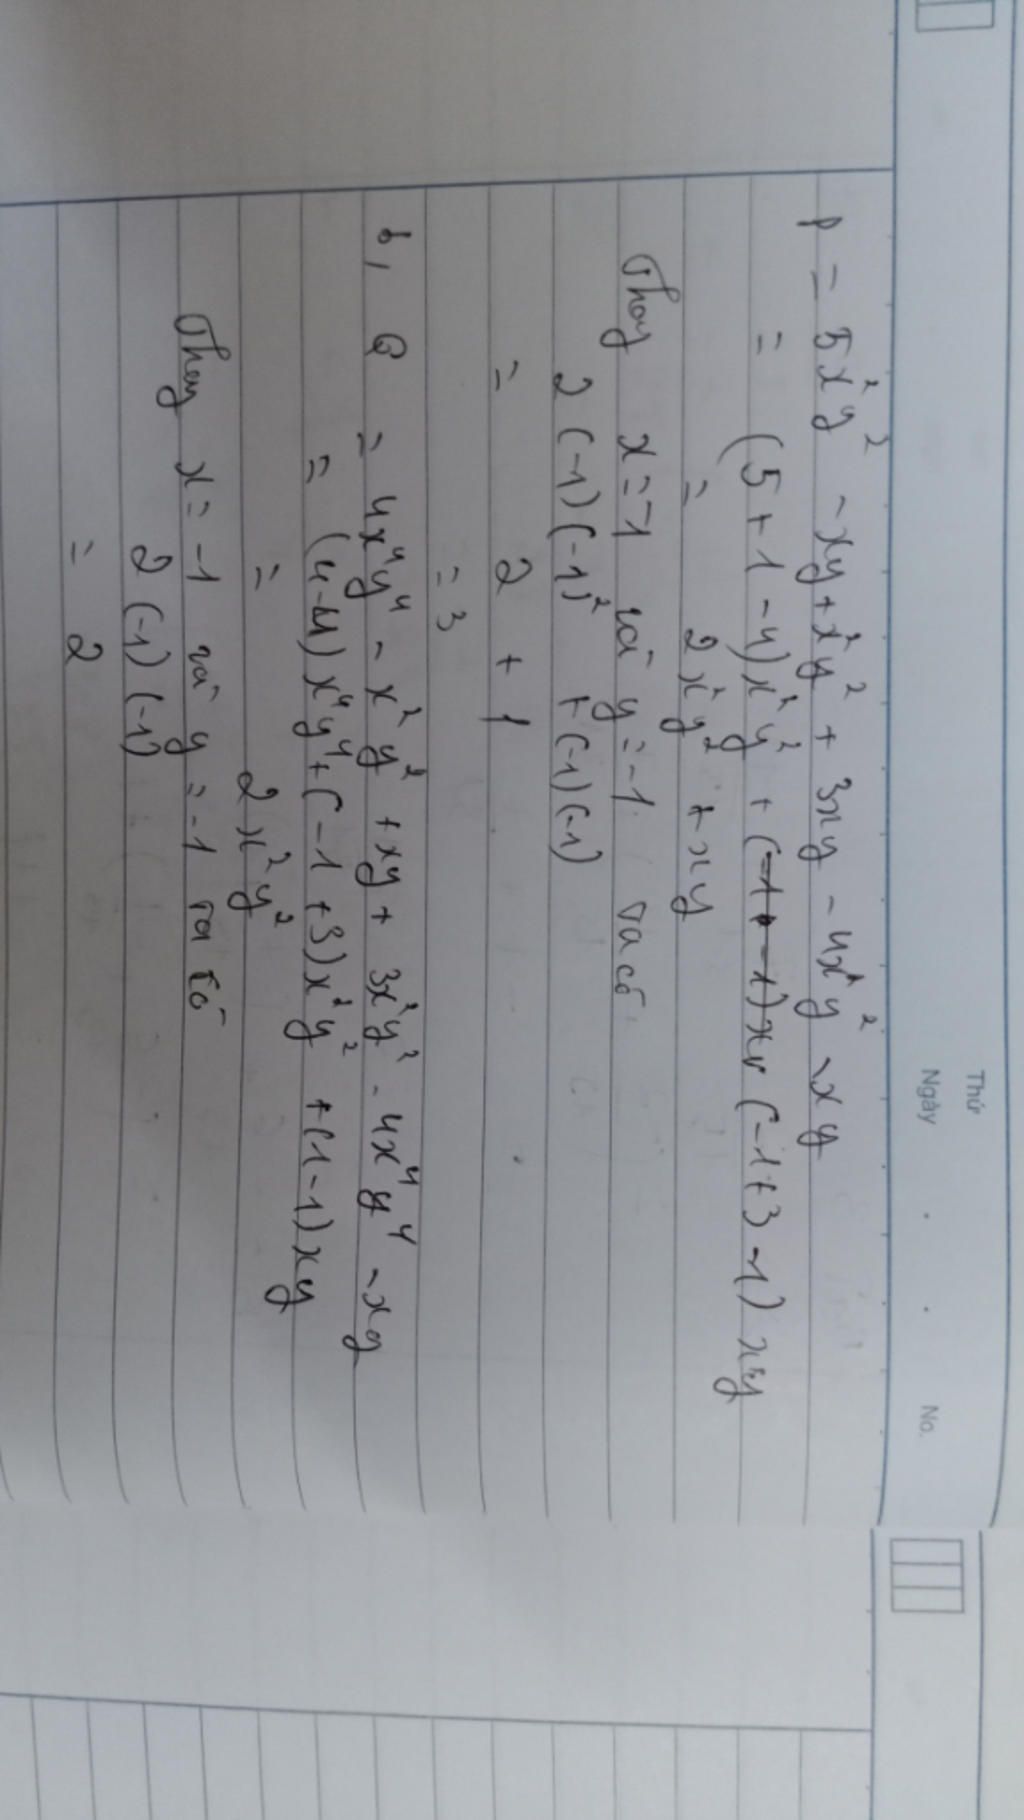 Thứ
Ngày . . No.
P = 5x²y² - xy + x²y² + 3xy - 4x²y² - xy
= (5 + 1 - 4)x²y² + (-1+3-1) xy
= 2x²y² + xy
Thay x = -1 và y = -1 ta có
2 (-1) (-1)² + (-1) (-1)
= 2 + 1
= 3
b, Q = 4x⁴y⁴ - x²y² + xy + 3x²y² - 4x⁴y⁴ - xy
= (4-4) x⁴y⁴ + (-1 +3)x²y² + (1-1)xy
= 2x²y²
Thay x = -1 và y = -1 ta có
2 (-1) (-1)
= 2